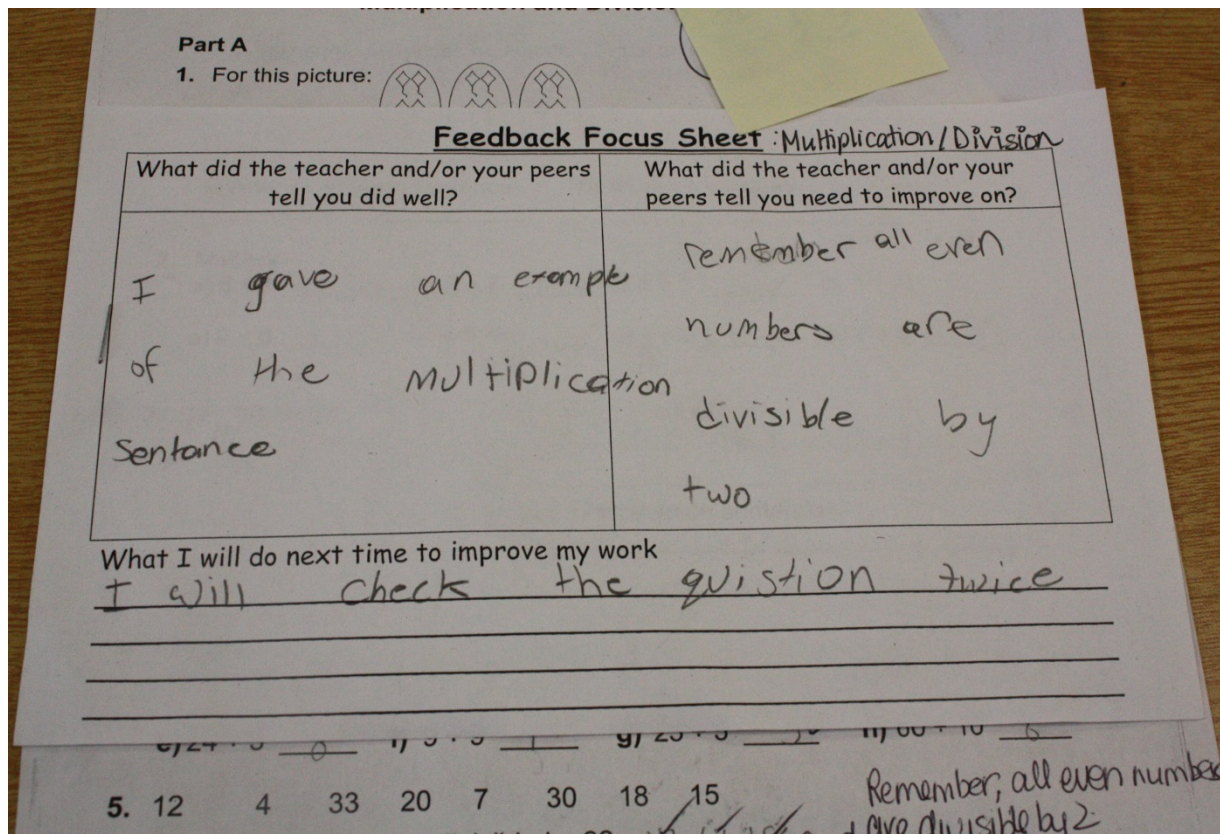 Part A
1. For this picture:
Feedback Focus Sheet : Multiplication / Division
What did the teacher and/or your peers
tell you did well?
What did the teacher and/or your
peers tell you need to improve on?
I gave an example
of the multiplication
Sentance
remember all even
numbers are
divisible by
two
What I will do next time to improve my work
I will check the quistion twice
5. 12 4 33 20 7 30 18 15
Remember, all even number
are divisible by 2